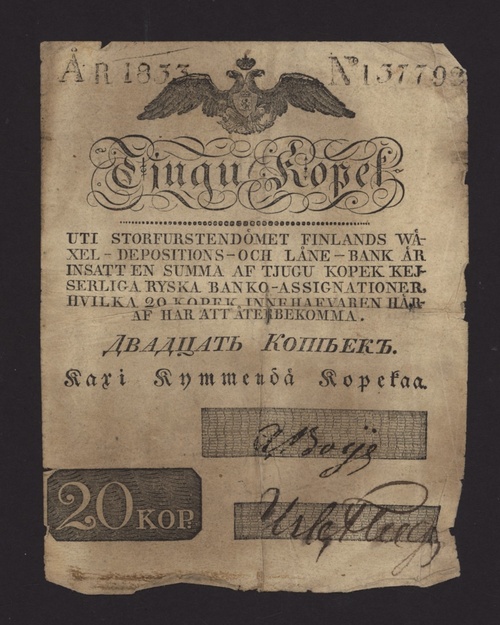 ÅR 1833 No 137792
Tjugu Kopek
UTI STORFURSTENDÖMET FINLANDS WÄ-
XEL-DEPOSITIONS-OCH LÅNE-BANK ÄR
INSATT EN SUMMA AF TJUGU KOPEK KEJ-
SERLIGA RYSKA BANKO-ASSIGNATIONER,
HVILKA 20 KOPEK INNEHAFVAREN HÄR-
AF HAR ATT ÅTERBEKOMMA.
ДВАДЦАТЬ КОПѢЕКЪ.
Kaxi Kymmendä Kopekaa.
20 KOP.